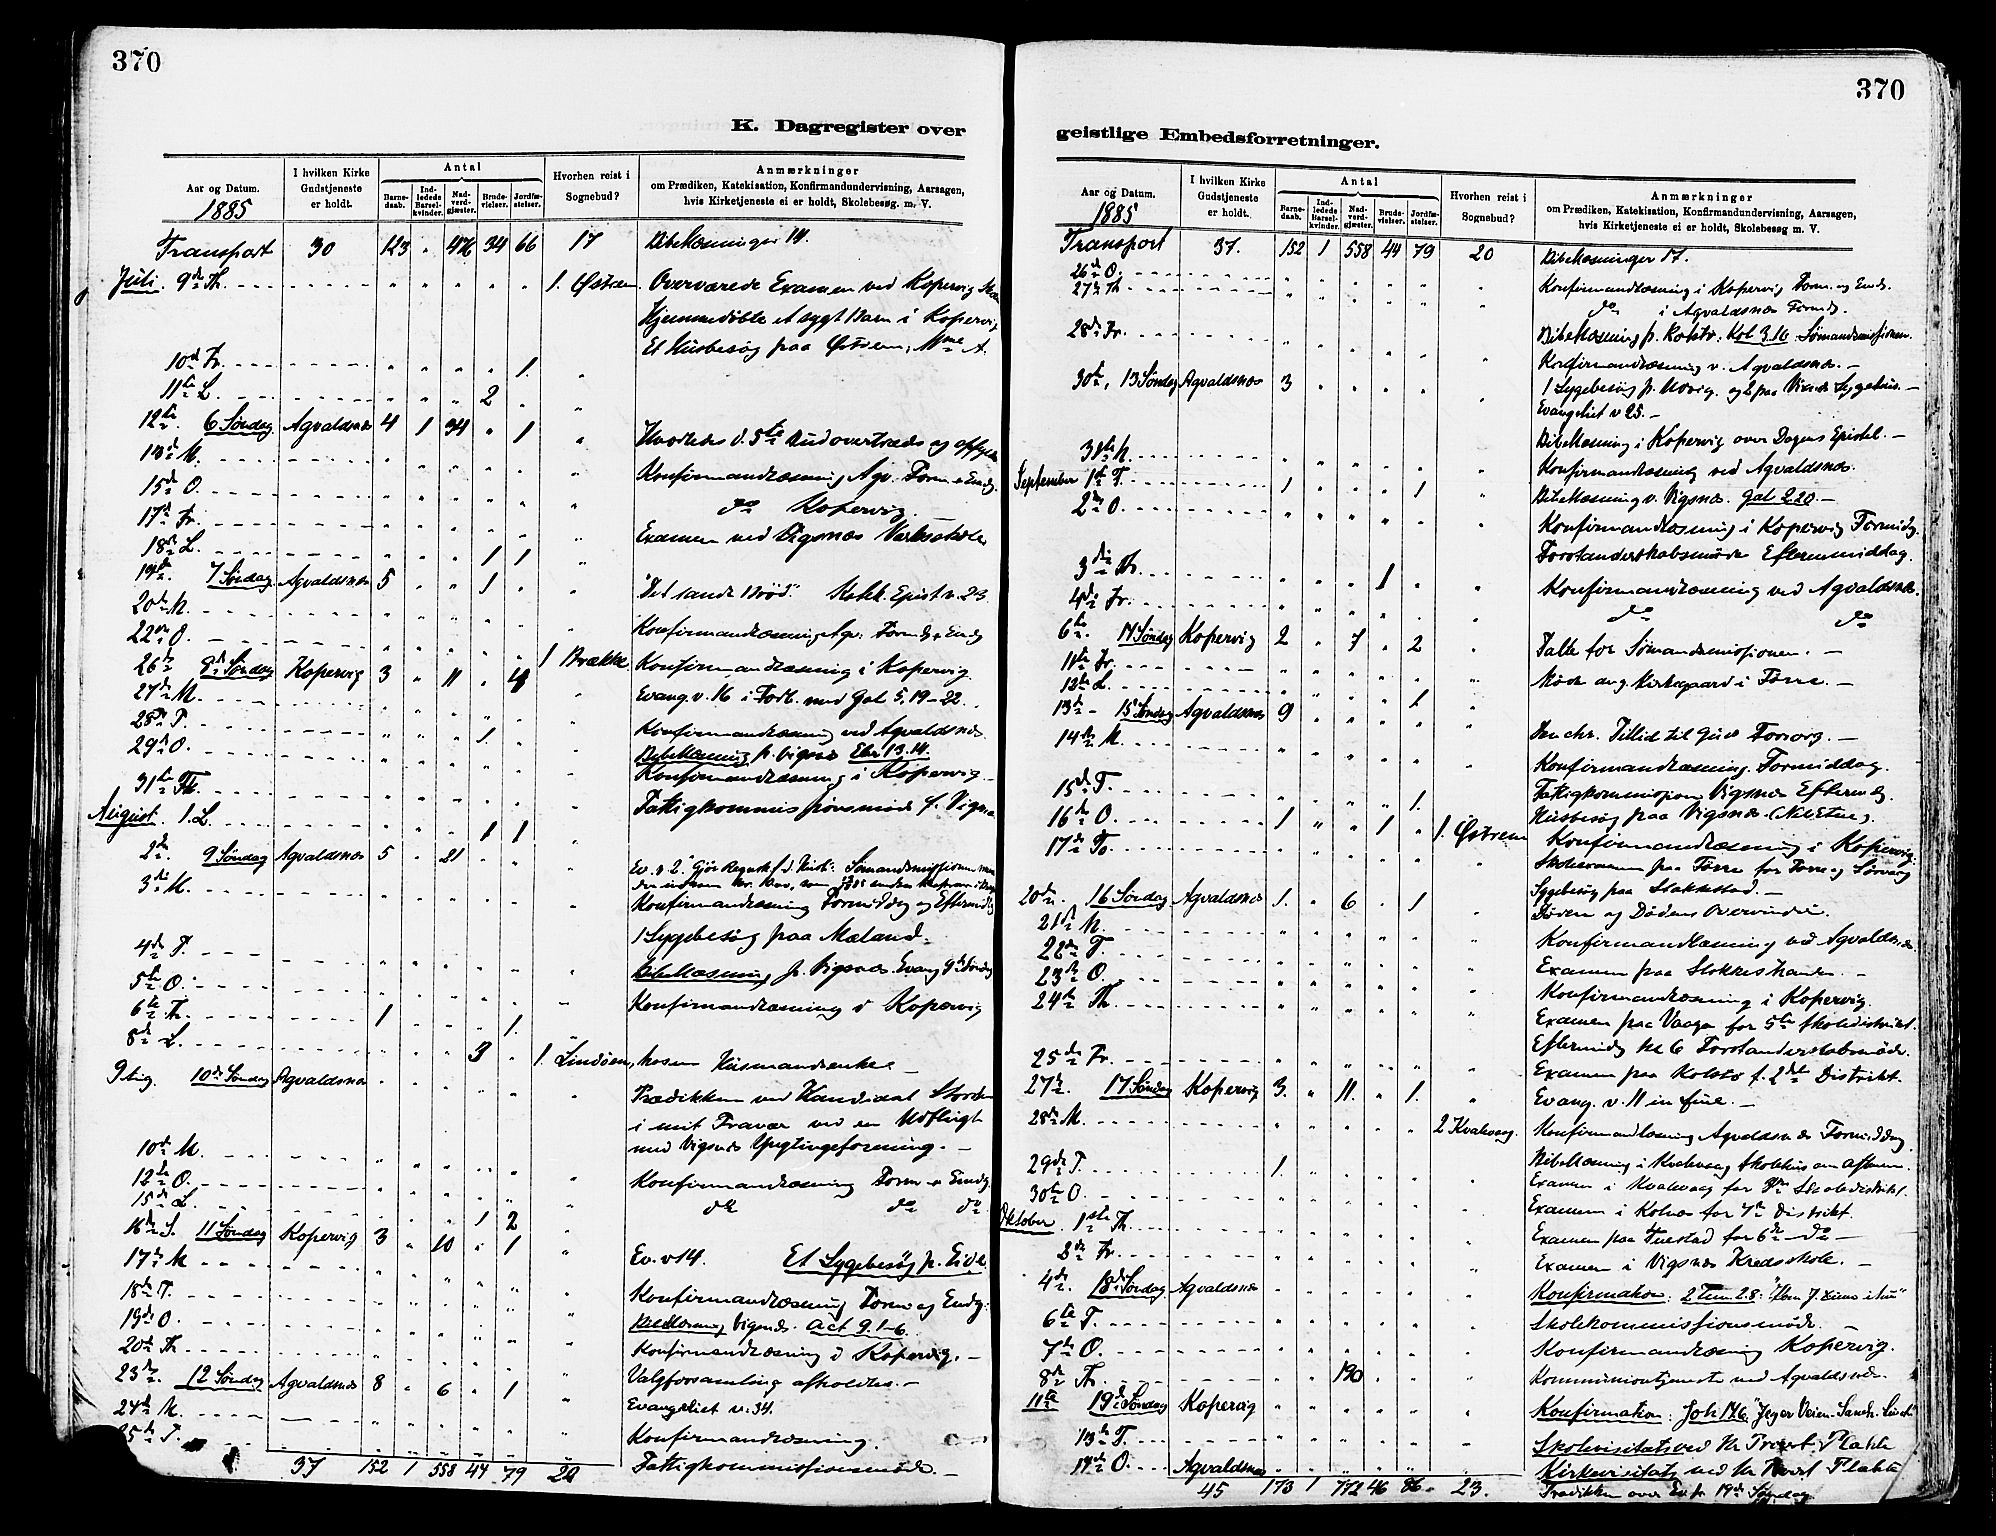 370
K. Dagregister over
Aar og Datum.
1885
I hvilken Kirke Gudstjeneste er holdt.
Antal
Barnedaab.
Indledede Barselkvinder.
Nadverdgjæster.
Brudevielser.
Jordfæstelser.
Hvorhen reist i Sognebud?
Anmærkninger
om Prædiken, Katekisation, Konfirmandundervisning, Aarsagen,
hvis Kirketjeneste ei er holdt, Skolebesøg. m. V.
Transport 30 123 " 476 34 66 17 Bibellæsninger 14.
Juli. 9de Th. 1. Østrem. Overværede Examen ved Kopervig
Hjemmedøbte et sygt Barn i Kopervig
Et Husbesøg paa Østrem; Mme A.
10de Fr. 1.
11te L. 2
12te. 6 Søndag Agvaldsnæs 4 1 34 " 1 Hvorledes d. 5te Bud overtrædes og
13de M. Konfirmandlæsning Agv. Form. & Emdg.
15de O. do Kopervig.
17de Fr. Examen ved Vigsnæs
18de L. 1 1
19de. 7 Søndag Agvaldsnæs 5 " " 1 "Det sande Brød." Epist v. 23.
20de M.
22de O. Konfirmandlæsning Agv. Formdg & Emdg
1 Brække Konfirmandlæsning i Kopervig.
26de 8de Søndag Kopervig 3 " 11 " 4 Evang. v. 16 i Forb. med Gal 5, 19-22.
27de M.
28de T. Konfirmandlæsning ved Agvaldsnæs
29de O. 1. Bibellæsning p. Vigsnæs Ebr 13.14.
Konfirmandlæsning i Kopervig
31te Fr. Fattigkommissionsmøde f. Vigsnæs
August. 1. L. 1 1
2de. 9 Søndag Agvaldsnæs 5 " 21 Ev. v 2. Gjør Regnsk. f. d. Hush: Sømandsmissionen
3de M. Konfirmandlæsning Formiddag og Eftermidg
1 Sygebesøg paa Mæland.
4de T. Bibellæsning p. Vigsnæs. Evang 9de Søndag
5te O. Konfirmandlæsning i Kopervig
6te Th. 1 1.
8de L. 3 " 1. Lindøen, hosen Husmandsenke
9. 10de Søndag Agvaldsnæs Prædikken ved Kandidat
i mit Fravær ved en Udflugt
med Vigsnæs Ynglingeforening.
10de M.
12te O. Konfirmandlæsning Form & Emdg.
15de L. 1 2 do do do
16de S. 11 Søndag Kopervig 3 " 10 " 1 Ev. v 14. Et Sygebesøg p. Eide
17de M
18de T. Konfirmandlæsning Form og Emdg:
19de O Bibellæsning Vigsnæs. Act 9.1-6.
20de Th Konfirmandlæsning i Kopervig.
23de. 12 Søndag Agvaldsnæs 8 " 6 " 1 Valgforsamling afholdtes.
24de M. Evangeliet v. 34.
25de T. Konfirmandlæsning.
37 152 1 558 44 79 20 Fattigkommissionsmøde.
370
geistlige Embedsforretninger.
Aar og Datum.
1885
I hvilken Kirke Gudstjeneste er holdt.
Antal
Barnedaab.
Indledede Barselkvinder.
Nadverdgjæster.
Brudevielser.
Jordfæstelser.
Hvorhen reist i Sognebud?
Anmærkninger
om Prædiken, Katekisation, Konfirmandundervisning, Aarsagen,
hvis Kirketjeneste ei er holdt, Skolebesøg m. V.
Transport 37. 152 1 558 44 79 20 Bibellæsninger 17.
26de O. Konfirmandlæsning i Kopervig Form. og Emdg.
27de Th do i Agvaldsnæs Formdg.
28de Fr. Bibellæsning p. Kolstø. Kol 3.16. Sømandsmissionen.
Konfirmandlæsning v. Agvaldsnæs.
30te, 13 Søndag Agvaldsnæs 3 1 Sygebesøg p. Udvig, og 2 paa Sygehus.
Evangeliet v 25.
31te M. Bibellæsning i Kopervig over Dagens Epistel.
September 1te T. 1 1 Konfirmandlæsning ved Agvaldsnæs.
2den O. Bibellæsning v. Vigsnæs. Gal 2.20.
Konfirmandlæsning i Kopervig Formidg.
Forstanderskabsmøde Eftermiddag.
3die Th. 1 Konfirmandlæsning ved Agvaldsnæs.
4de Fr. do do
6te. 14 Søndag Kopervig 2 " 7 " 2 Talte for Sømandsmissionen.
11te Fr. Møde ang. Kirkegaard i Førre.
12te L. 1
13de 15 Søndag Agvaldsnæs 9 Den chr. Tillid til Guds Forsorg.
14de M. Konfirmandlæsning. Formiddag.
15de T. 1. Fattigkommission Vigsnæs Eftermdg.
16de O. 1 " " 1 " 1. Østrem Husbesøg paa Vigsnæs.
17de To Konfirmandlæsning i Kopervig.
paa Førre for Førre og
Sygebesøg paa Stakkestad.
20de. 16 Søndag. Agvaldsnæs 1. " 6 " 1 Døden og Dødens Overvinder.
21de M. Konfirmandlæsning ved Agvaldsnæs
22de T. Examen paa Stokkestrand.
23de O. Konfirmandlæsning i Kopervig.
24de Th. Examen paa Vaage for 5te Skoledistrikt.
Eftermidg Kl 6 Forstanderskabsmøde.
25de Fr. Examen paa Kolstø f. 2det Distrikt.
27de. 17 Søndag Kopervig 3. " 11. " 1. Evang. v. 11 in fine.
28de M. 2 Kvalevaag. Konfirmandlæsning Agvaldsnæs Formiddag
29de T. 1. Bibellæsning i Kvalevaag Skolehus om Aftenen.
30te O. Examen i Kvalevaag for Skoledistrikt.
Oktober 1ste Th. Examen i Kolnæs for 7de Distrikt.
Examen paa Tuestad for 6te do
2de Fr. Examen i Vigsnæs Kredsskole.
4de. 18de Søndag. Agvaldsnæs Konfirmation: 2 Tim 2.8:
6te T. Skolekommissionsmøde.
7de O. Konfirmandlæsning Kopervig.
8de Th. 190 Kommuniontjeneste ved Agvaldsnæs.
11te 19de Søndag Kopervig Konfirmation: Joh 14.6. "Jeg er Veien Sandh. Livet"
13de T. Skolevisitats ved Hr Provst
14de O. Agvaldsnæs Kirkevisitats ved Hr Provst
45 173 1 772 46 86. 23. Prædikken over Ev. p. 19de Søndag